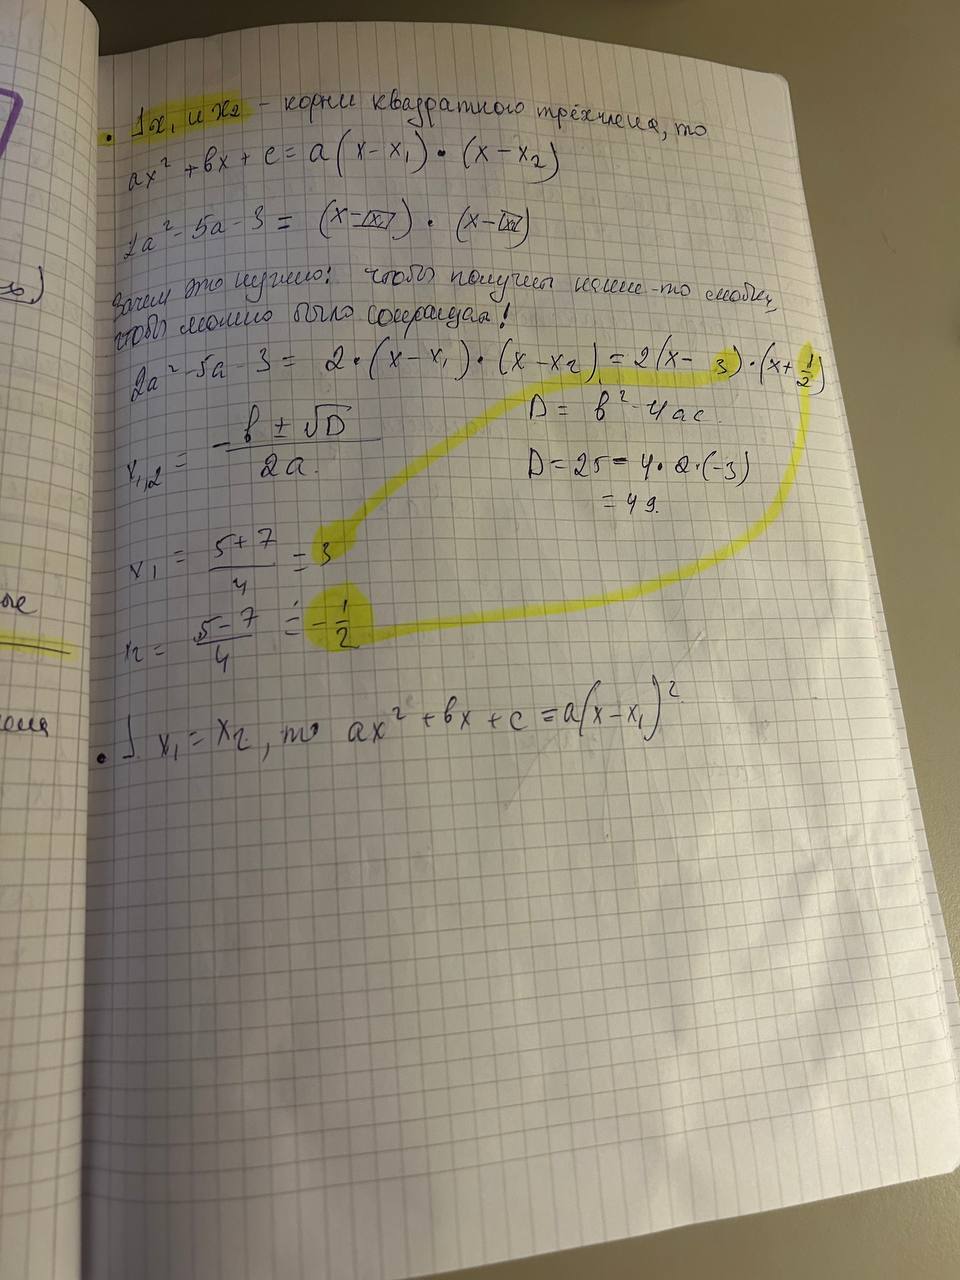 ь)
ые
ения
• ] x₁ и x₂ - корни квадратного трёхчлена, то
ax² + bx + c = a(x - x₁) • (x - x₂)
2a² - 5a - 3 = (x - x₁) • (x - x₂)
Зачем это нужно: чтобы получить какие-то скобки,
чтобы можно было сокращать!
2a² - 5a - 3 = 2 • (x - x₁) • (x - x₂) = 2(x - 3) • (x + 1/2)
D = b² - 4ac
x₁,₂ = (-b ± √D)/2a.
D = 25 - 4 • 2 • (-3)
= 49.
x₁ = (5 + 7)/4 = 3
x₂ = (5 - 7)/4 = -1/2
• ] x₁ = x₂, то ax² + bx + c = a(x - x₁)²